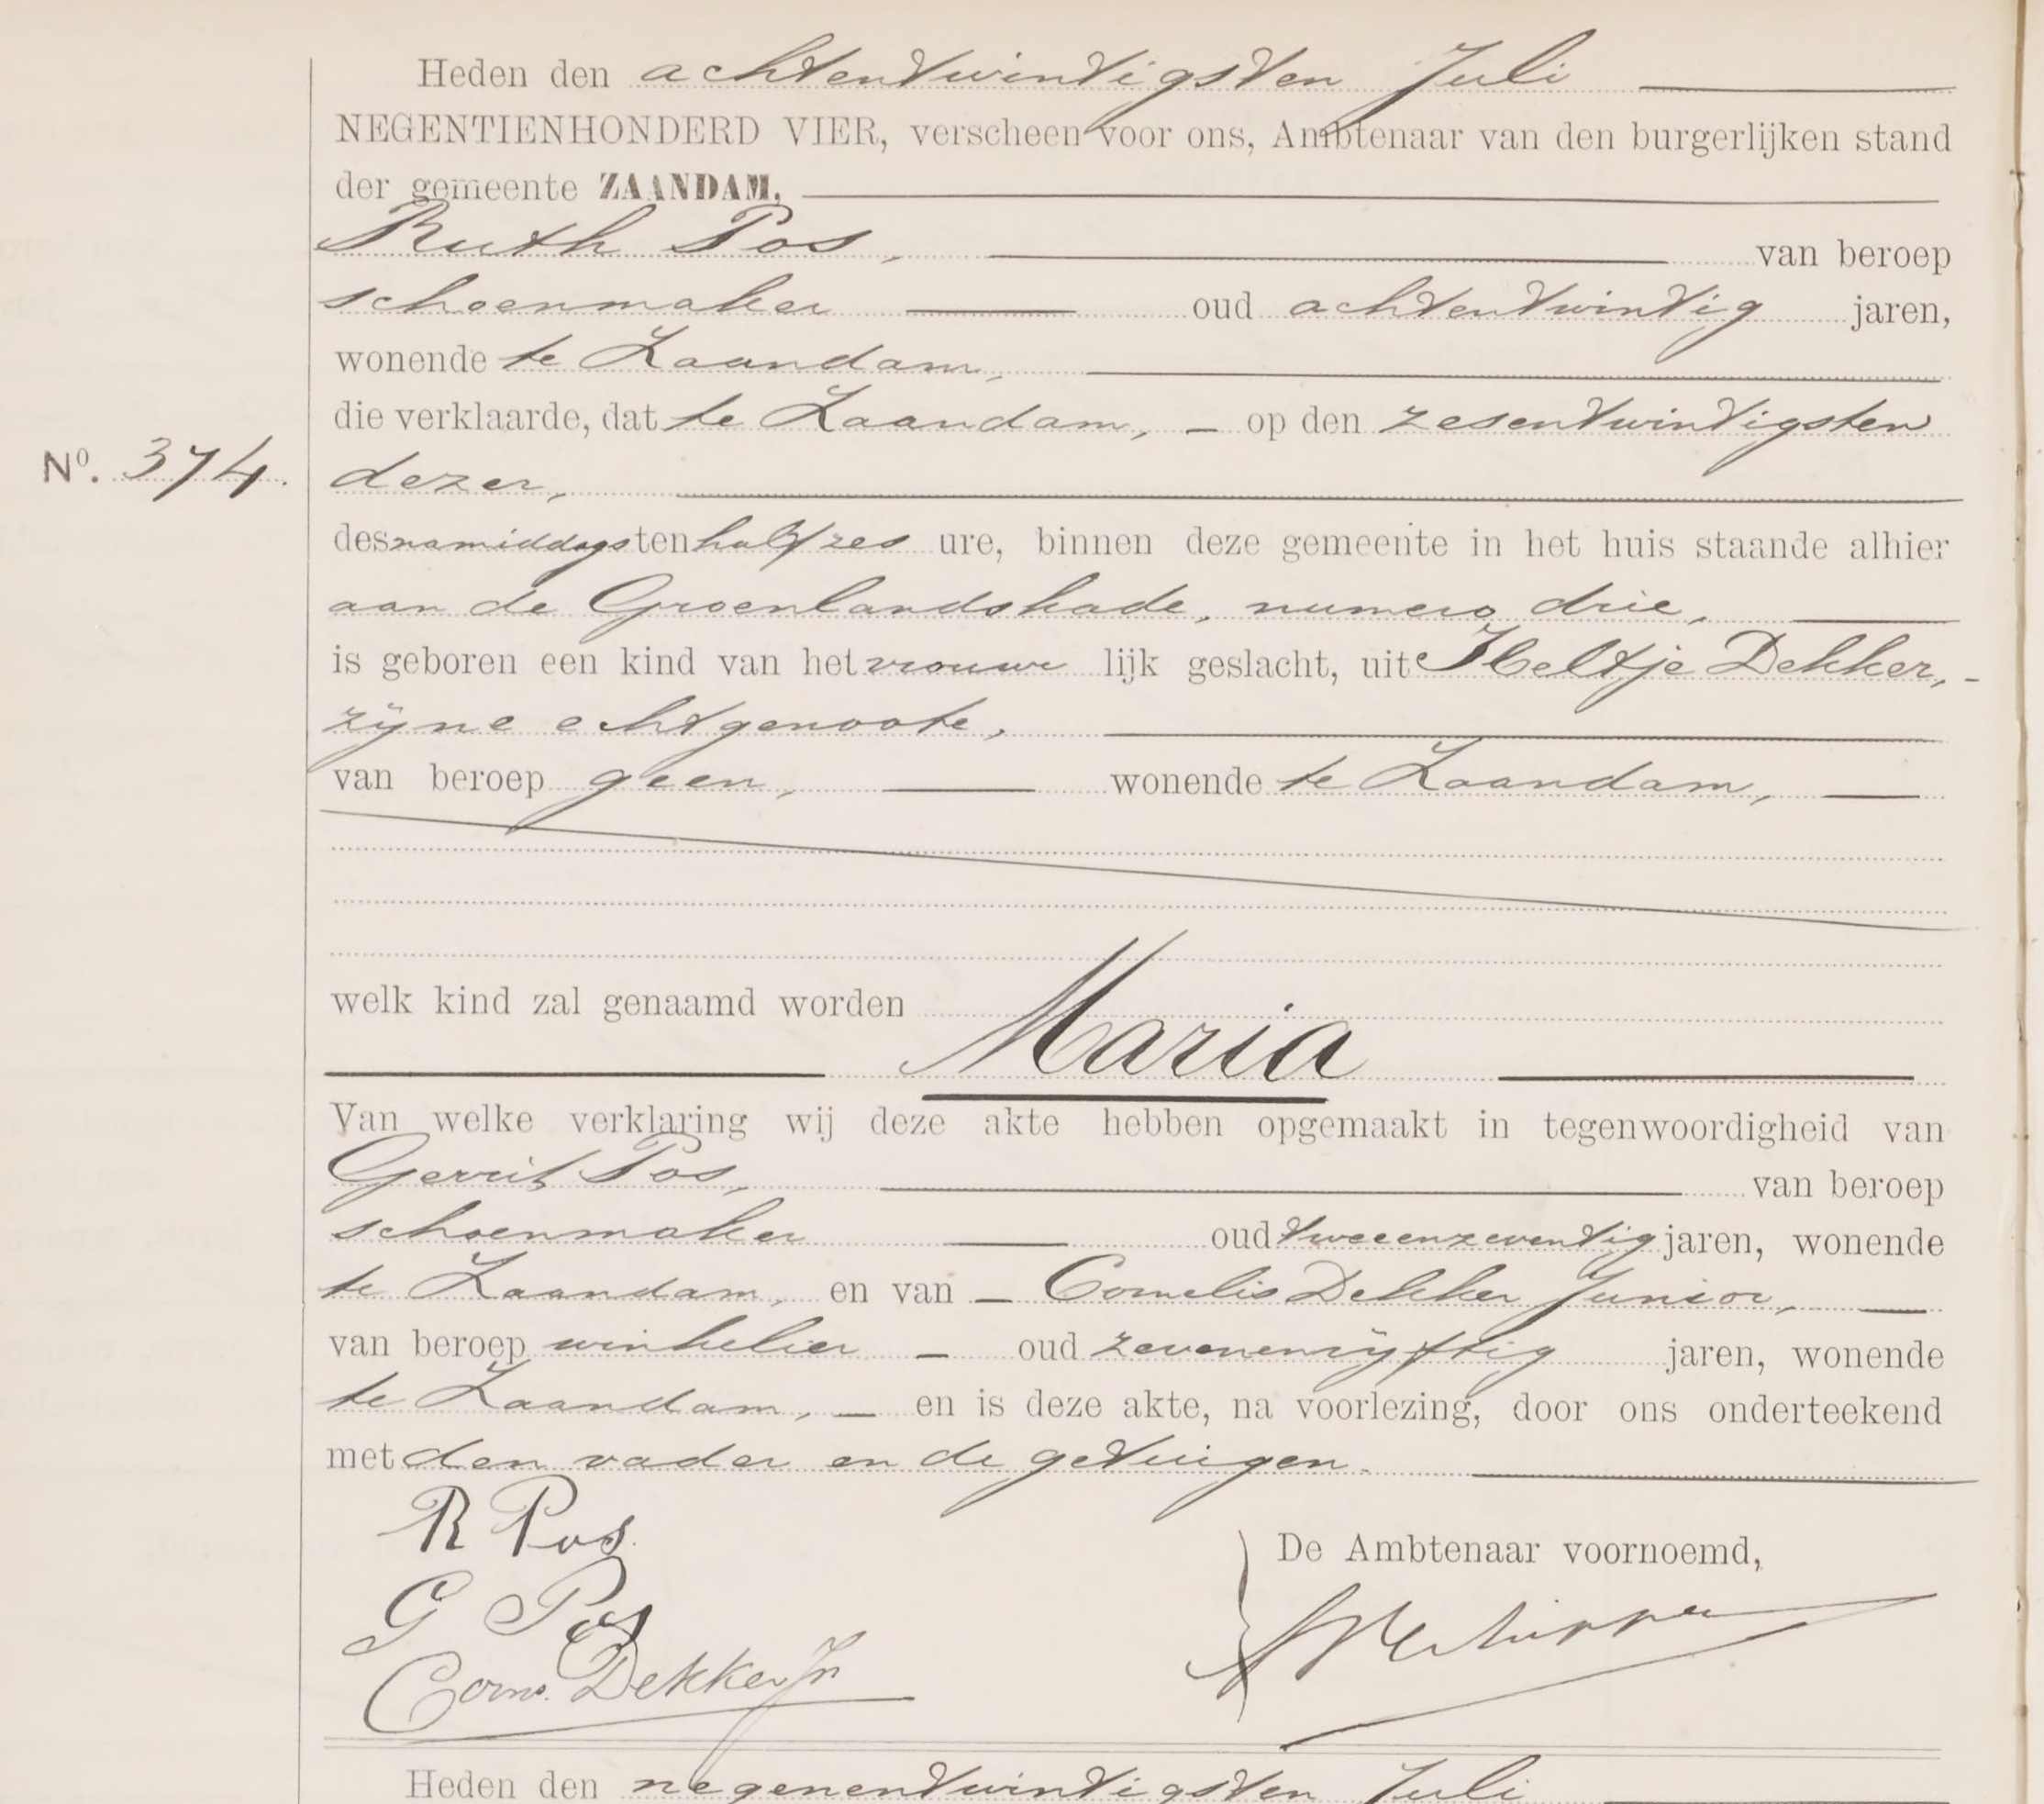 Heden den achtentwintigsten Juli
NEGENTIENHONDERD VIER, verscheen voor ons, Ambtenaar van den burgerlijken stand
der gemeente ZAANDAM,
Ruth Pos, van beroep
schoenmaker oud achtentwintig jaren,
wonende te Zaandam,
die verklaarde, dat te Zaandam, — op den zesentwintigsten
No. 374. dezer,
des namiddags ten half zes ure, binnen deze gemeente in het huis staande alhier
aan de Groenlandskade, numero drie,
is geboren een kind van het vrouwe lijk geslacht, uit Heltje Dekker, -
zijne echtgenoote,
van beroep geen, wonende te Zaandam,
welk kind zal genaamd worden
Maria
Van welke verklaring wij deze akte hebben opgemaakt in tegenwoordigheid van
Gerrit Pos, van beroep
schoenmaker oud tweeenzeventig jaren, wonende
te Zaandam, en van — Cornelis Dekker Junior,
van beroep winkelier — oud zevenenvijftig jaren, wonende
te Zaandam, — en is deze akte, na voorlezing, door ons onderteekend
met den vader en de getuigen.
R Pos.
De Ambtenaar voornoemd,
G Pos
Corns. Dekker Jr
Heden den negenentwintigsten Juli